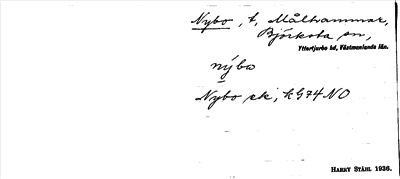 Nybo, t, Målhammar,
Björksta sn,
Yttertjurbo hd, Västmanlands län.
nýbo
Nybo ek, kG74NO
HARRY STÅHL 1936.